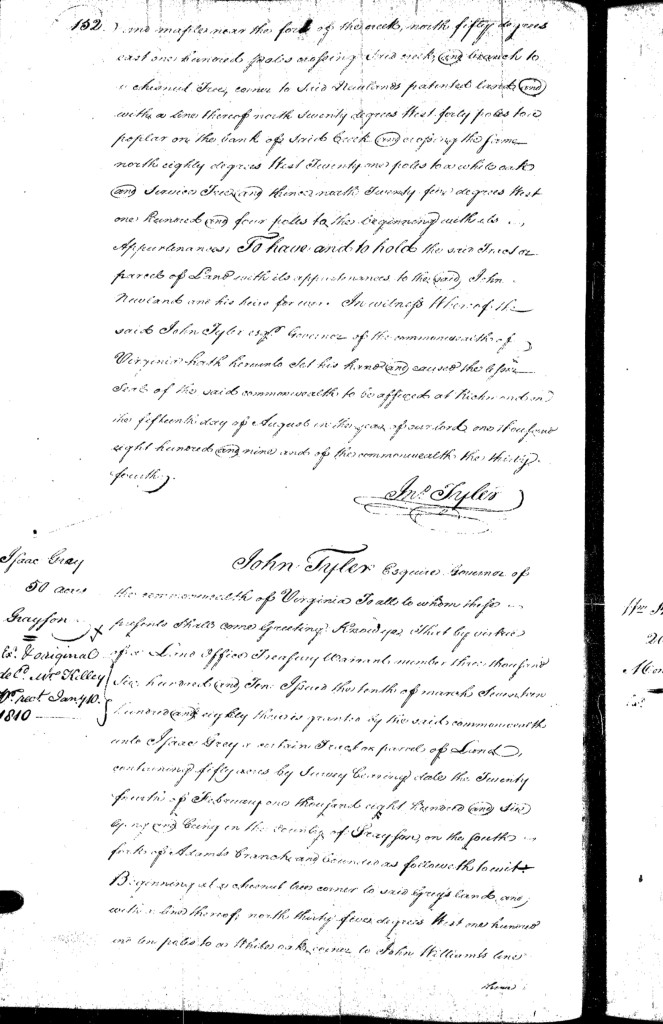 152
and maples near the fork of the creek, north fifty degrees
east one hundred poles crossing said creek and branch to
a chesnut Tree, corner to said Newlands patented land and
with a line thereof north seventy degrees West forty poles to a
poplar on the bank of said creek and crossing the same
north eighty degrees West Twenty one poles to a white oak
and Service Tree and thence north Twenty five degrees West
one hundred and four poles to the beginning with its
Appurtenances, To have and to hold the said Tract or
parcel of Land with its appurtenances to the said John
Newland and his heirs forever. In witness Whereof the
said John Tyler esqr. Governor of the commonwealth of
Virginia hath hereunto Set his hand and caused the lesser
Seal of the said commonwealth to be affixed at Richmond on
the fifteenth day of August in the year of our lord one thousand
eight hundred and nine and of the commonwealth the thirty
fourth.
Jno. Tyler
Isaac Gray
50 acres
Grayson
Ex. & original
del. Mr Kelley
Jany 10.
1810
John Tyler Esquire Governor of
the commonwealth of Virginia To all to whom these
presents Shall come Greeting Know ye That by virtue
of a Land Office Treasury Warrant number three thousand
Six hundred and Ten Issued the tenth of march Seventeen
hundred and eighty there is granted by the said commonwealth
unto Isaac Grey a certain Tract or parcel of Land,
containing fifty acres by Survey bearing date the Twenty
fourth of February one thousand eight hundred and Six
lying and being in the county of Grayson, on the South
fork of Adams branch and bounded as followeth to wit
Beginning at a chesnut corner to said Greys land, and
with a line thereof, north thirty five degrees West one hundred
and ten poles to a White oak, corner to John Williams line